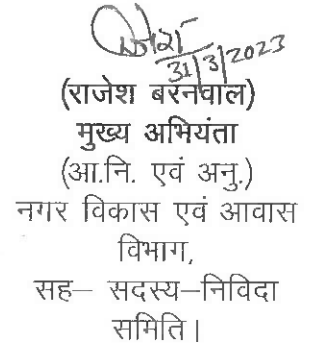 31/3/2023
(राजेश बरनवाल)
मुख्य अभियंता
(आ.नि. एवं अनु.)
नगर विकास एवं आवास
विभाग,
सह– सदस्य–निविदा
समिति।